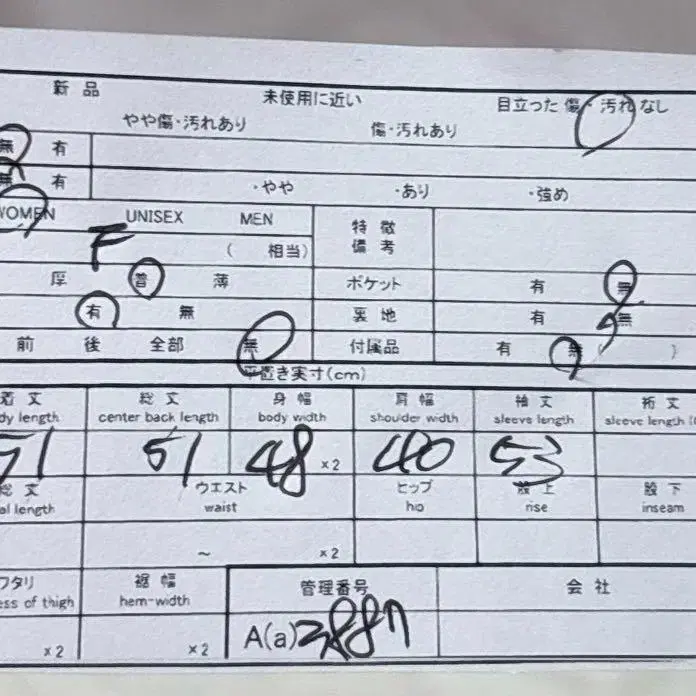 新品 未使用に近い 目立った傷・汚れなし
やや傷・汚れあり 傷・汚れあり
無 有
無 有 ・やや ・あり ・強め
WOMEN UNISEX MEN 特徴
F ( 相当) 備考
厚 普 薄 ポケット 有 無
有 無 裏地 有 無
前 後 全部 無 付属品 有 無 ( )
平置き実寸(cm)
着丈 総丈 身幅 肩幅 袖丈 裄丈
dy length center back length body width shoulder width sleeve length sleeve length (
51 51 48 ×2 40 53
総丈 ウエスト ヒップ 股上 股下
al length waist hip rise inseam
~ ×2
ワタリ 裾幅 管理番号 会社
ess of thigh hem-width
×2 ×2 A(a) 3887